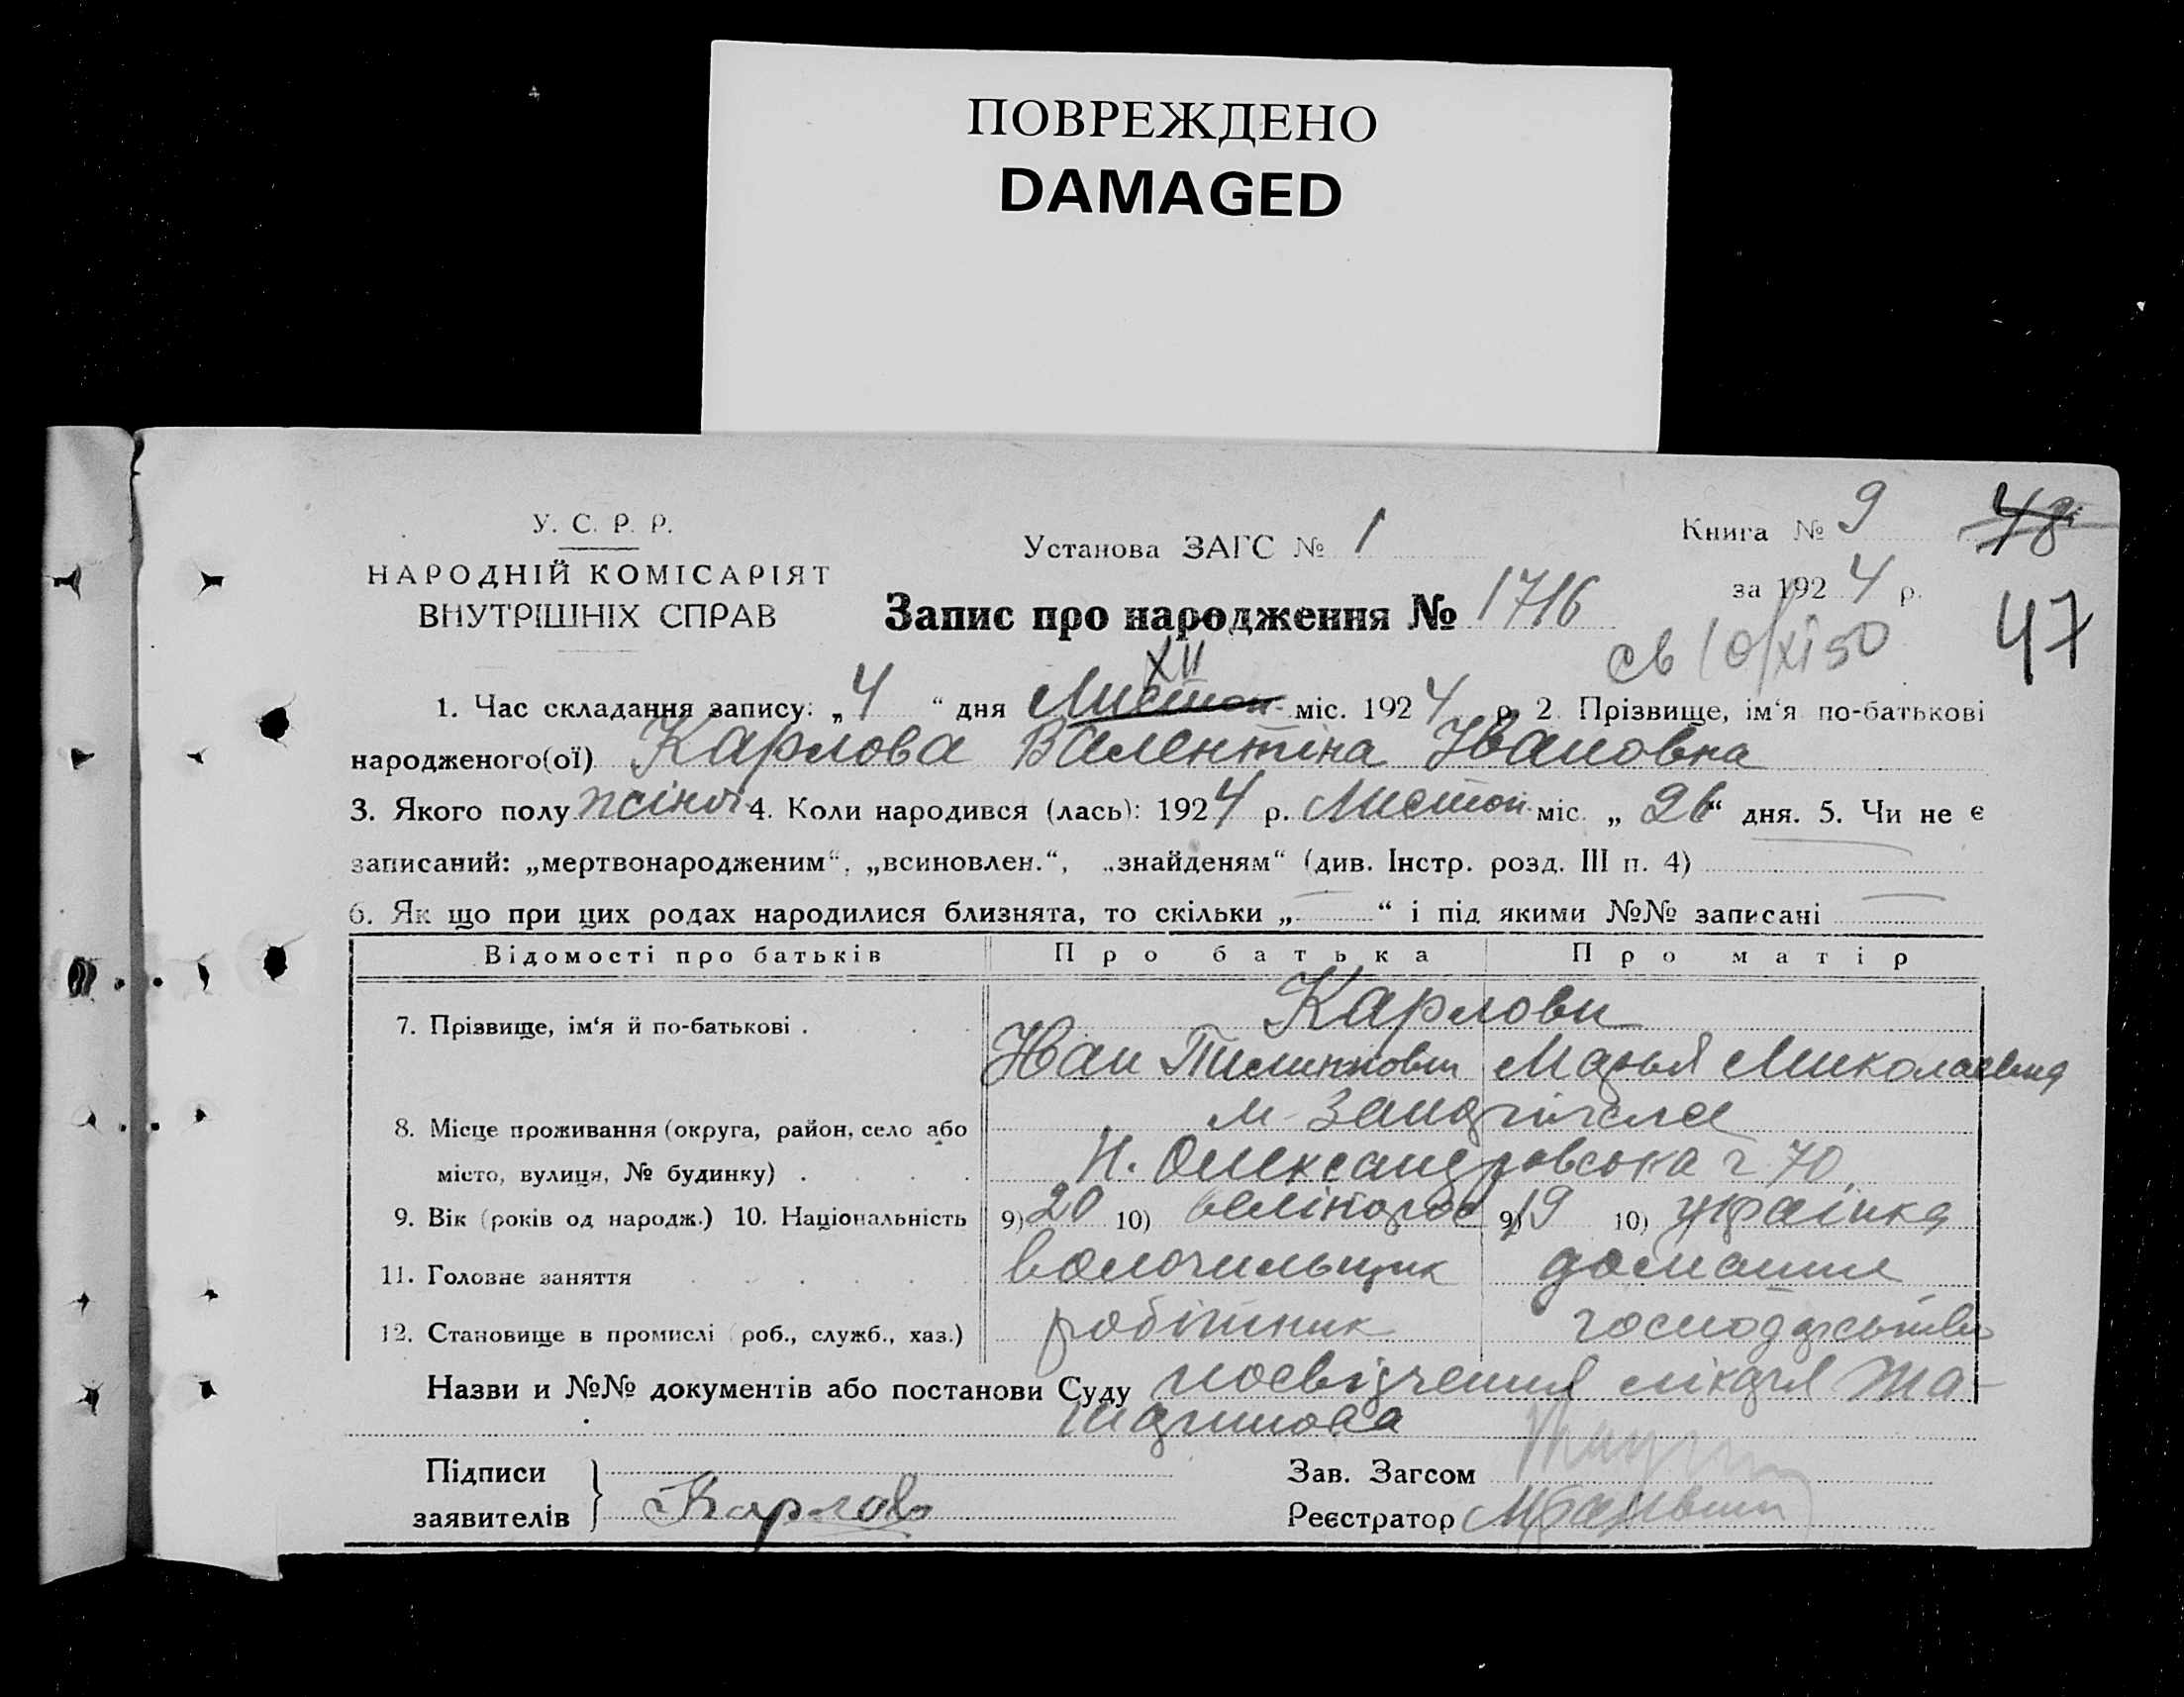 ПОВРЕЖДЕНО
DAMAGED
У. С. Р. Р.
НАРОДНІЙ КОМІСАРІЯТ
ВНУТРІШНІХ СПРАВ
Установа ЗАГС № 1
Книга № 9
48
за 1924 р.
47
Запис про народження № 1716
св 10/XI 50
XII
1. Час складання запису: „4“ дня Листоп. міс. 1924 р. 2. Прізвище, ім‘я по-батькові
народженого(ої) Карлова Валентіна Івановна
3. Якого полу жіноч. 4. Коли народився (лась): 1924 р. Листоп. міс. „26“ дня. 5. Чи не є
записаний: „мертвонародженим“, „всиновлен.“, „знайденям“ (див. Інстр. розд. III п. 4)
6. Як що при цих родах народилися близнята, то скільки „ “ і під якими №№ записані
Відомості про батьків Про батька Про матір
7. Прізвище, ім‘я й по-батькові . Карлови
Іван Марья Миколаевна
8. Місце проживання (округа, район, село або м.
місто, вулиця, № будинку) . Н. Олександровська 70
9. Вік (років од народж.) 10. Національність 9) 20 10) велікорос 9) 19 10) українка
11. Головне заняття волочильщик домашнє
12. Становище в промислі (роб., служб., хаз.) робітник господарство
Назви и №№ документів або постанови Суду посвідчення лікаря
Підписи
заявителів } Карлов
Зав. Загсом
Реєстратор